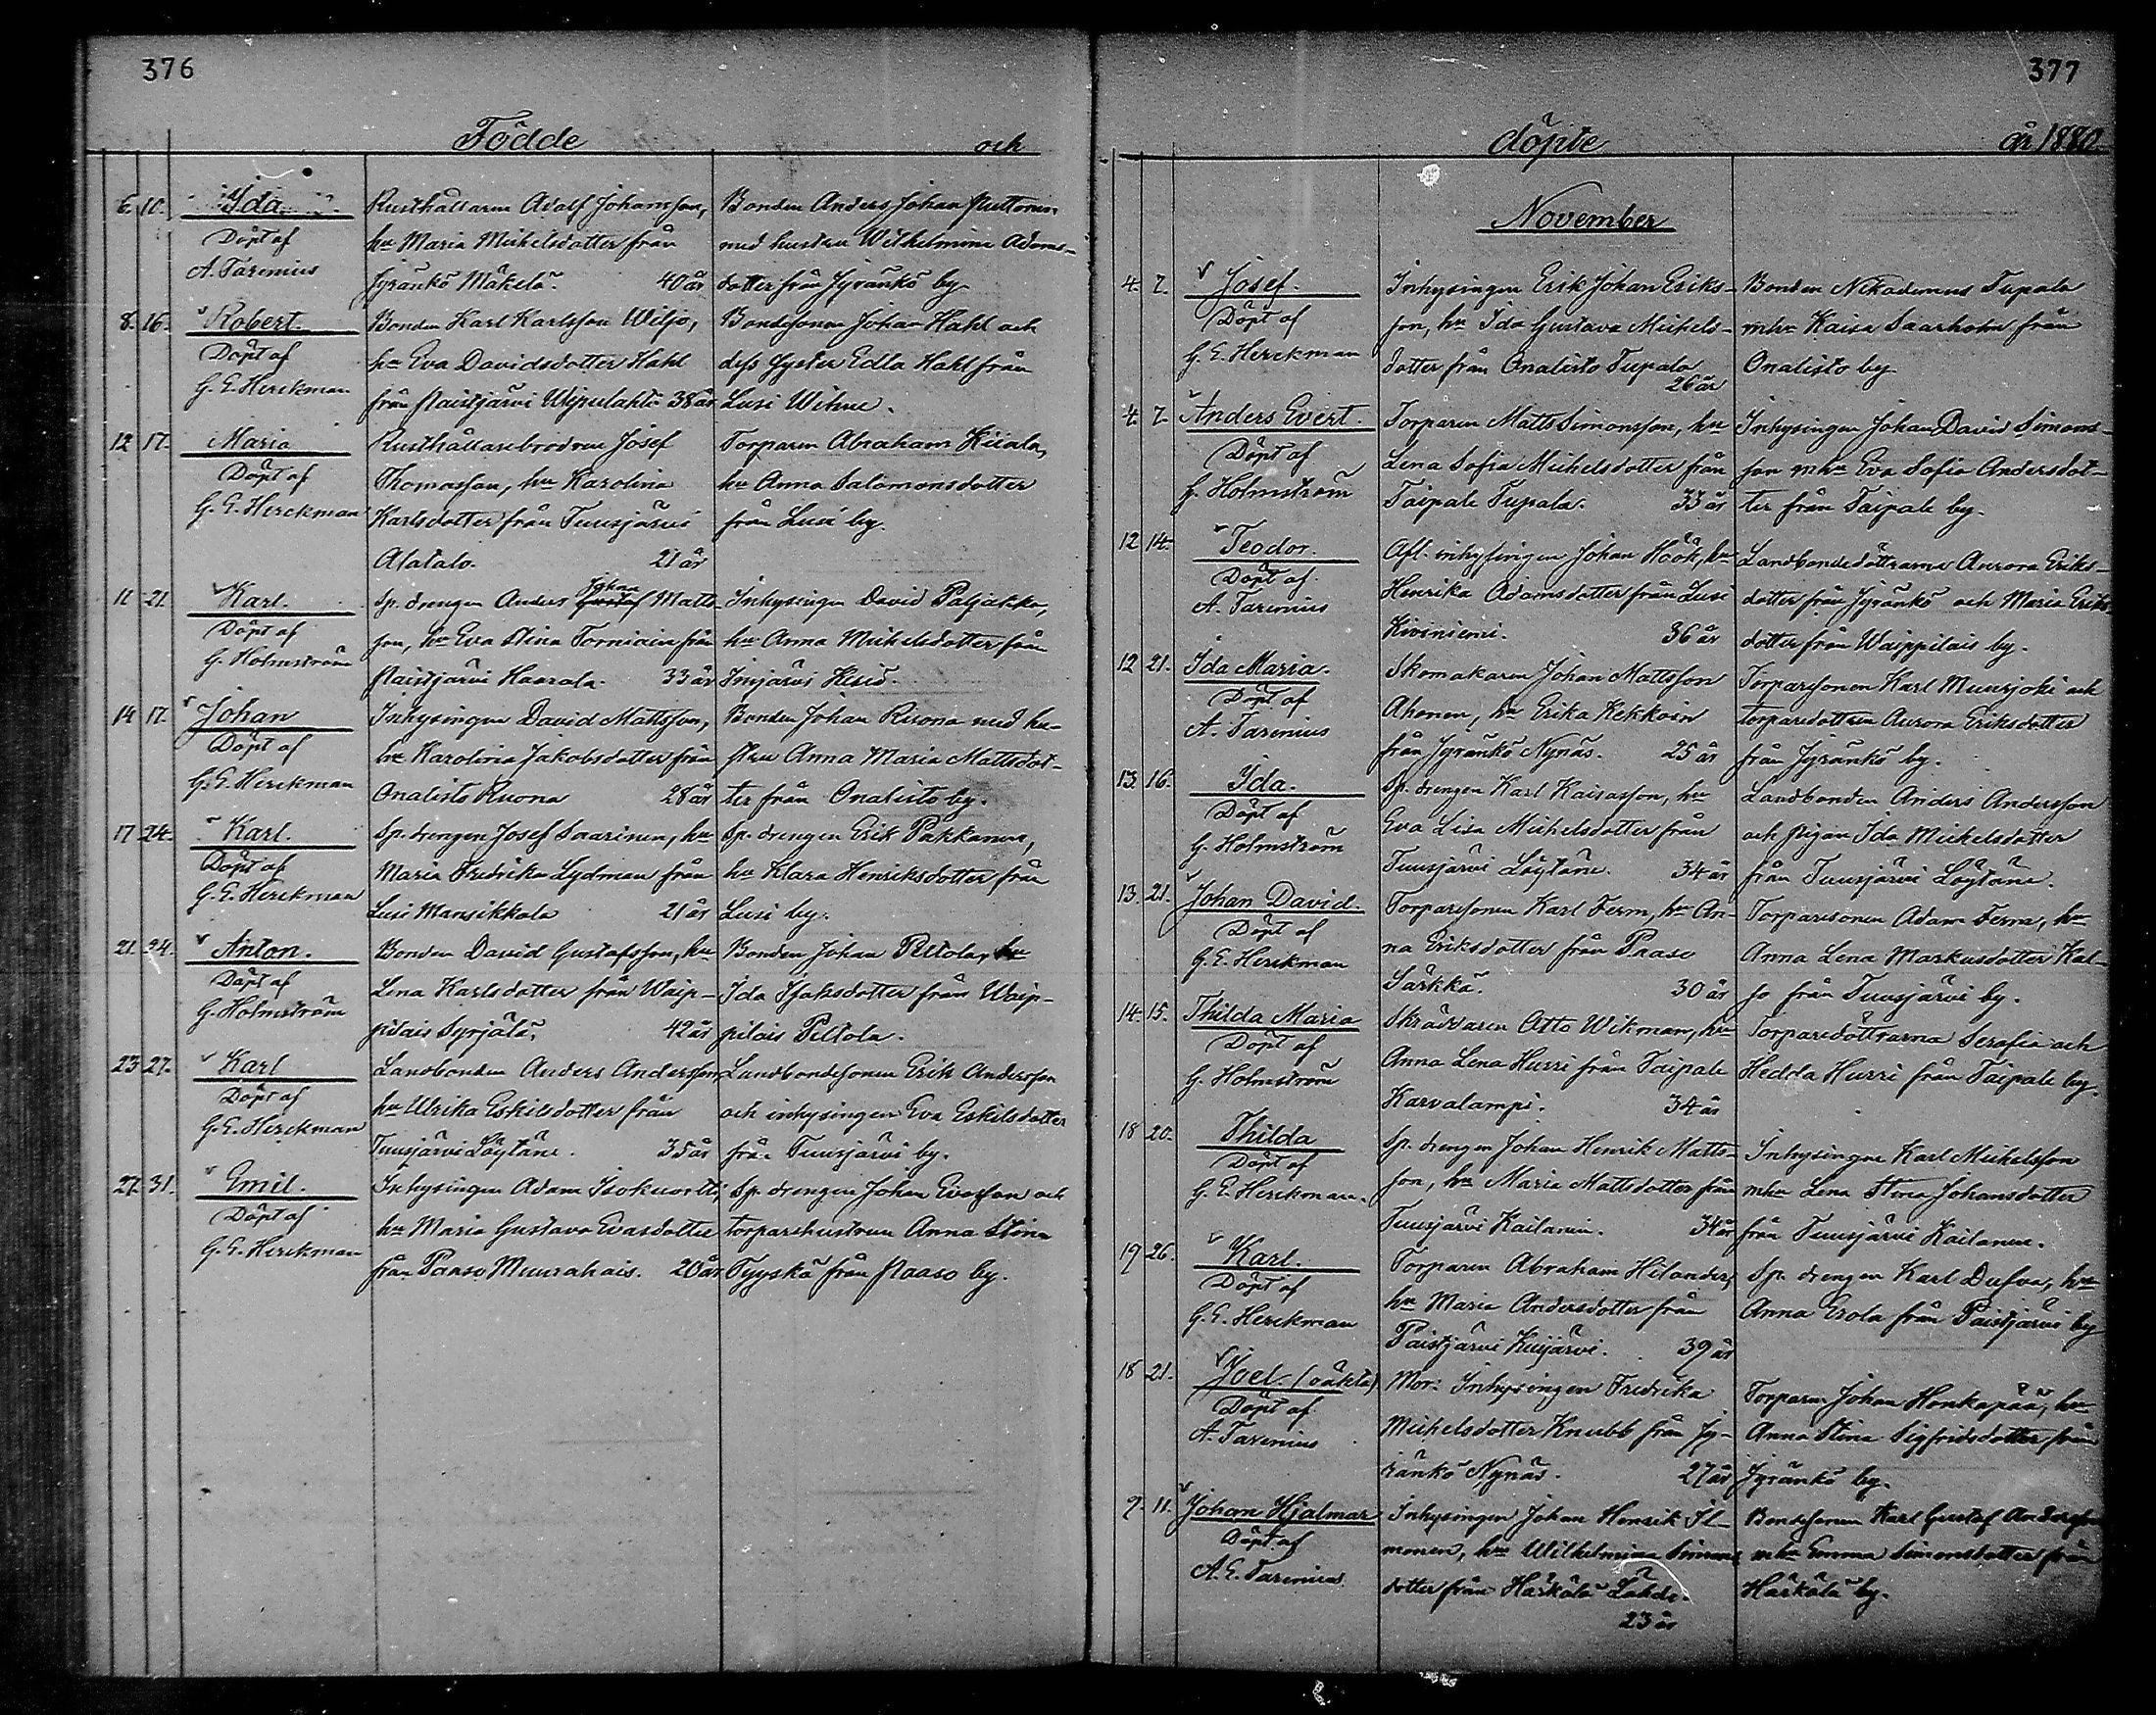 376
Födde och
6. 10. Ida
Döpt af
A. Tarenius
Rusthållaren Adolf Johansson,
hu Maria Michelsdotter från
Jyränkö Mäkelä. 40 år
Bonden Anders Johan
med hustru Wilhelmina Adams-
dotter från Jyränkö by
8. 16. Robert.
Döpt af
G. E. Herckman
Bonden Karl Karlsson Wiljo,
hu Eva Davidsdotter Hahl
från Paistjärvi 38 år
Bondesonen Johan Hahl och
dess syster Edla Hahl från
Lusi
12 17. Maria
Döpt af
G. E. Herckman
Rusthållarebrodren Josef
Thomasson, hu Karolina
Karlsdotter från Tuusjärvi
Alatalo. 21 år
Torparen Abraham Kiiala,
hu Anna Salomonsdotter
från Lusi by.
11 21. Karl.
Döpt af
G. Holmström
Sp. drengen Anders Johan Matts-
son, hu Eva Stina Torniain från
Paistjärvi Haarala. 33 år
Inhysingen David Paljakka,
hu Anna Michelsdotter från
Imjärvi
14 17. Johan
Döpt af
G. E. Herckman
Inhysingen David Mattsson,
hu Karolina Jakobsdotter från
Onalisto Ruona 28 år
Bonden Johan Ruona med hu-
stru Anna Maria Mattsdot-
ter från Onalisto by.
17 24. Karl.
Döpt af
G. E. Herckman
Sp. drengen Josef Saarinen, hu
Maria Fredrika Lydman från
Lusi Mansikkala 21 år
Sp. drengen Erik Pakkanen,
hu Klara Henriksdotter från
Lusi by.
21. 24. Anton.
Döpt af
G. Holmström
Bonden David Gustafsson, hu
Lena Karlsdotter från Waip-
pilais Syrjälä. 42 år
Bonden Johan Peltola, hu
Ida Isaksdotter från Waip-
pilais Peltola.
23 27. Karl
Döpt af
G. E. Herckman
Landbonden Anders Andersson,
hu Ulrika Eskilsdotter från
Tuusjärvi Löytäne. 35 år
Landbondesonen Erik Andersson
och inhysingen Eva Eskilsdotter
från Tuusjärvi by.
27. 31. Emil.
Döpt af
G. E. Herckman
Inhysingen Adam Isokuortti,
hu Maria Gustava Evasdotter
från Paaso Muurahais. 20 år
Sp. drengen Johan Evasson och
torparehustrun Anna Stina
Tyyskä från Paaso by.
377
döpte år 1880.
November
4. 7. Josef.
Döpt af
G. E. Herckman
Inhysingen Erik Johan Eriks-
son, hu Ida Gustava Michels-
dotter från Onalisto Tupala
26 år
Bonden Nikodemus Tupala
mhu Kaisa Saarholm från
Onalisto by
4. 7. Anders Evert.
Döpt af
G. Holmström
Torparen Matts Simonsson, hu
Lena Sofia Michelsdotter från
Taipale Tupala. 33 år
Inhysingen Johan David Simons-
son mhu Eva Sofia Andersdot-
ter från Taipale by.
12 14. Teodor.
Döpt af
A. Tarenius
Afl. inhysingen Johan Höök, hu
Henrika Adamsdotter från Lusi
Kiviniemi. 36 år
Landbondedöttrarna Aurora Eriks-
dotter från Jyränkö och Maria Eriks
dotter från Waippilais by.
12 21. Ida Maria.
Döpt af
A. Tarenius
Skomakaren Johan Mattsson
Ahonen, hu Erika Kekkoin
från Jyränkö Nynäs. 25 år
Torparesonen Karl Muurjoki och
torparedottren Aurora Eriksdotter
från Jyränkö by.
13. 16. Ida.
Döpt af
G. Holmström
Sp. drengen Karl Kaisasson, hu
Eva Lisa Michelsdotter från
Tuusjärvi Löytäne. 34 år
Landbonden Anders Andersson
och pigan Ida Michelsdotter
från Tuusjärvi Löytäne.
13. 21. Johan David.
Döpt af
G. E. Herckman
Torparesonen Karl Ferm, hu An-
na Eriksdotter från Paaso
Särkkä. 30 år
Torparesonen Adam Ferm, hu
Anna Lena Markusdotter Kal-
jo från Tuusjärvi by.
14. 15. Thilda Maria
Döpt af
G. Holmström
Skräddaren Otto Wikman, hu
Anna Lena Hurri från Taipale
Karvalampi. 34 år
Torparedöttrarna Serafia och
Hedda Hurri från Taipale by.
18 20. Thilda
Döpt af
G. E. Herckman.
Sp. drengen Johan Henrik Matts-
son, hu Maria Mattsdotter från
Tuusjärvi Kailanen. 34 år
Inhysingen Karl Michelsson
mhu Lena Stina Johansdotter
från Tuusjärvi Kailanen.
19 26. Karl.
Döpt af
G. E. Herckman
Torparen Abraham Hilander,
hu Maria Andersdotter från
Paistjärvi Kuijärvi. 39 år
Sp. drengen Karl Dufva, hu
Anna Erola från Paistjärvi by
18 21. Joel. (oäkta)
Döpt af
A. Tarenius
Mor: Inhysingen Fredrika
Michelsdotter Knubb från Jy-
ränkö Nynäs. 27 år
Torparen Johan Honkapää, hu
Anna Stina Sigfridsdotter från
Jyränkö by.
9. 11. Johan Hjalmar
Döpt af
A. E. Tarenius
Inhysingen Johan Henrik Il-
monen, hu Wilhelmina Simons
dotter från Härkälä Lähde.
23 år
Bondesonen Karl Gustaf Andersson
mhu Emma Simonsdotter från
Härkälä by.